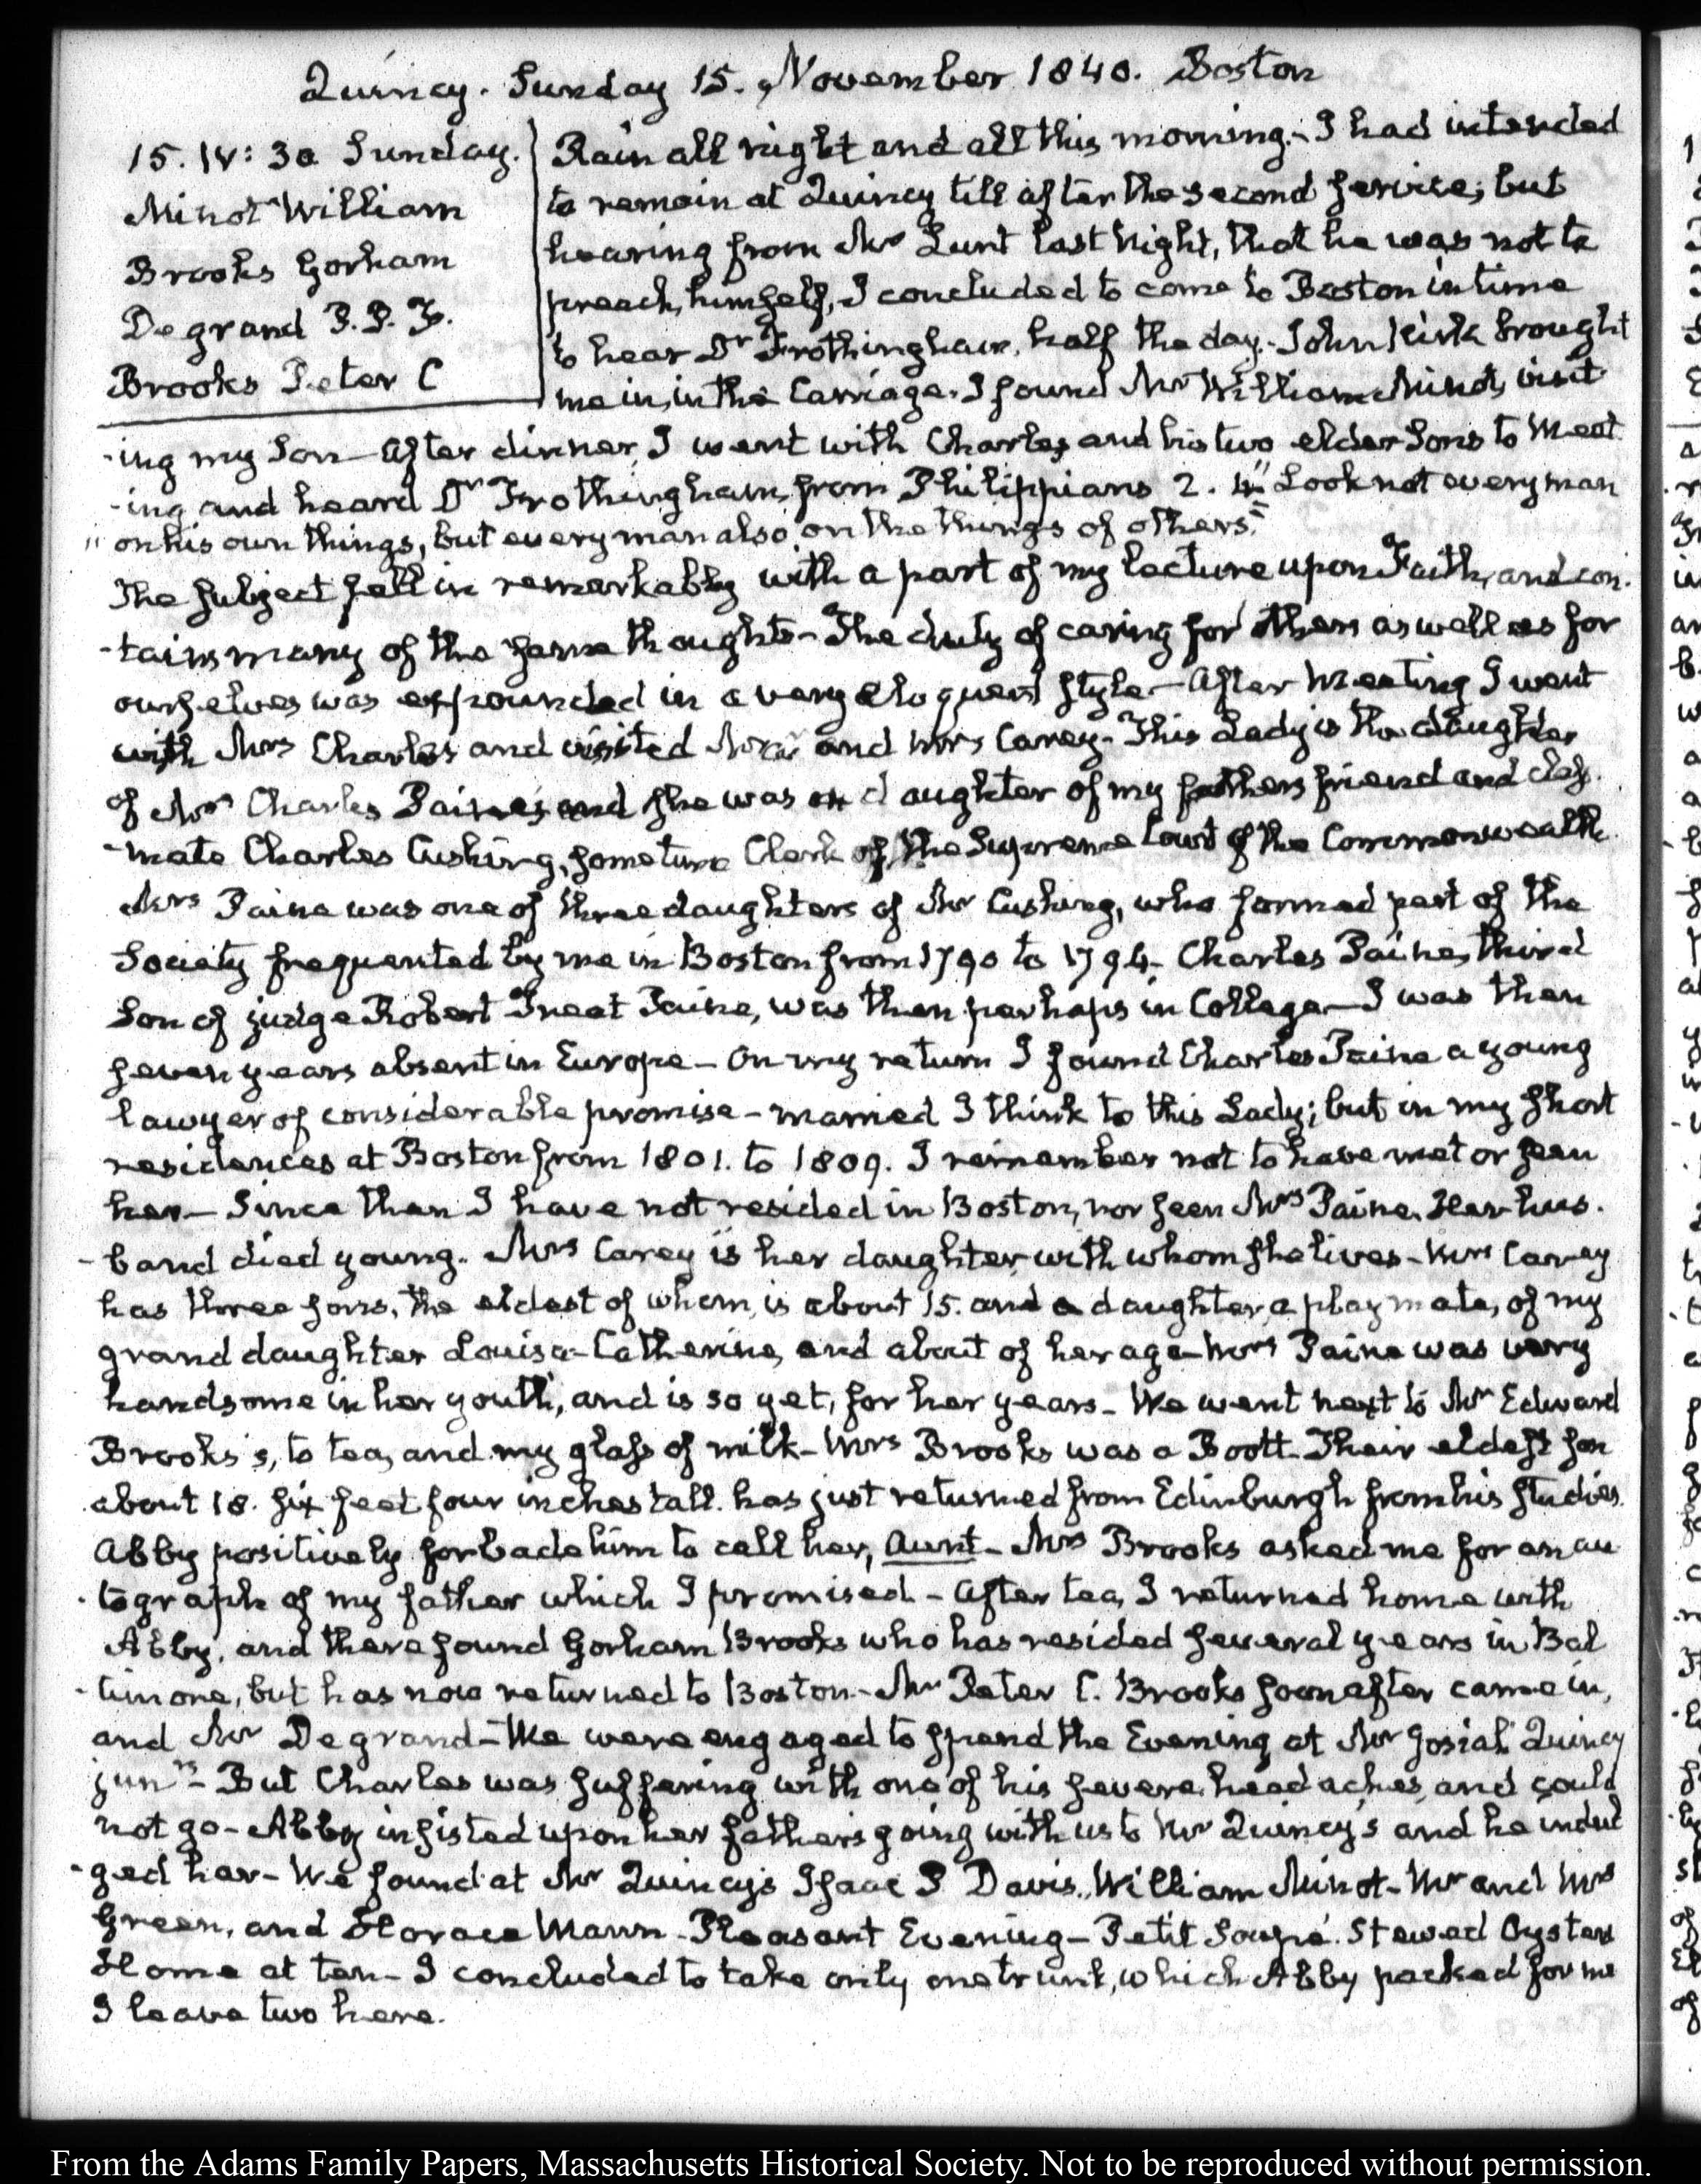 Quincy. Sunday 15. November 1840. Boston
15. IV: 30 Sunday.
Minot William
Brooks Gorham
Degrand P. P. F.
Brooks Peter C
Rain all night and all this morning.- I had intended
to remain at Quincy till after the second service; but
hearing from Mr Lunt last Night, that he was not to
preach, himself, I concluded to come to Boston in time
to hear Dr Frothingham, half the day.- John Kirk brought
me in, in the Carriage. I found Mr William Minot, visit
-ing my Son- After dinner, I went with Charles and his two elder Sons to Meet
-ing and heard Dr Frothingham, from Philippians 2. 4. "Look not every man
"on his own things, but every man also on the things of others."
The subject fell in remarkably with a part of my lecture upon Faith, and con.
-tains many of the same thoughts- The duty of caring for others as well as for
ourselves was expounded in a very eloquent style- After Meeting I went
with Mrs Charles and visited Mr and Mrs Carey- This Lady is the daughter
of Mrs Charles Paine, and she was a daughter of my father's friend and class.
-mate Charles Cushing, sometime Clerk of the Supreme Court of the Commonwealth.
Mrs Paine was one of three daughters of Mr Cushing, who formed part of the
Society frequented by me in Boston from 1790 to 1794- Charles Paine, third
Son of judge Robert Treat Paine, was then perhaps in College- I was then
seven years absent in Europe- On my return I found Charles Paine a young
lawyer of considerable promise- married I think to this Lady; but in my short
residences at Boston from 1801. to 1809. I remember not to have met or seen
her- Since then I have not resided in Boston, nor seen Mrs Paine. Her hus.
-band died young. Mrs Carey is her daughter with whom she lives- Mrs Carey
has three sons, the eldest of whom, is about 15. and a daughter, a playmate, of my
grand daughter Louisa-Catherine, and about of her age- Mrs Paine was very
handsome in her youth, and is so yet, for her years- We went next to Mr Edward
Brooks's, to tea, and my glass of milk- Mrs Brooks was a Boott- Their eldest son
about 18. six feet four inches tall. has just returned from Edinburgh from his studies.
Abby positively forbade him to call her, Aunt- Mrs Brooks asked me for an au
-tograph of my father which I promised- After tea, I returned home with
Abby, and there found Gorham Brooks who has resided several years in Bal
-timore, but has now returned to Boston- Mr Peter C. Brooks soon after came in,
and Mr Degrand- We were engaged to spend the Evening at Mr Josiah Quincy
junrs- But Charles was suffering with one of his severe head aches, and could
not go- Abby insisted upon her father's going with us to Mr Quincy's and he indul
-ged her- We found at Mr Quincy's Isaac P Davis, William Minot- Mr and Mrs
Green, and Horace Mann- Pleasant Evening- Petit Soupé. Stewed Oysters
Home at ten- I concluded to take only one trunk, which Abby packed for me
I leave two here.
From the Adams Family Papers, Massachusetts Historical Society. Not to be reproduced without permission.